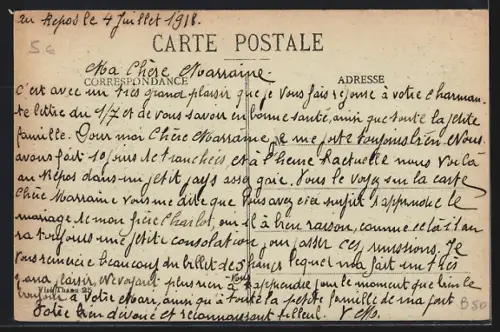 au Repos le 4 Juillet 1918.
5€
CARTE POSTALE
Ma Chère Marraine
CORRESPONDANCE
ADRESSE
C'est avec un très grand plaisir que je vous fais reponse à votre charman-
te lettre du 1/7 et de vous savoir en bonne santé, ainsi que toute la petite
famille. Pour moi Chère Marraine, je me porte toujours bien. Nous
avons fait 10 jours de tranchées, et à l'heure actuelle nous voilà
au Repos dans un petit pays assez gaie. Vous le voyez sur la carte
Chère Marraine vous me dite que vous avez été surprit d'apprendre le
mariage de mon frère Charlot, oui il à bien raison, comme cela il au
ra toujours une petite consolation, pour passer ces permissions. Je
vous remercie beaucoup du billet de 5 francs lequel m'a fait un très
grand plaisir, ne voyant plus rien à vous apprendre pour le moment que bien le
Visé Thouars 25
bonjour à votre Mari, ainsi qu'à toute la petite famille de ma part
Votre bien dévoué et reconnaissant filleul.
B50